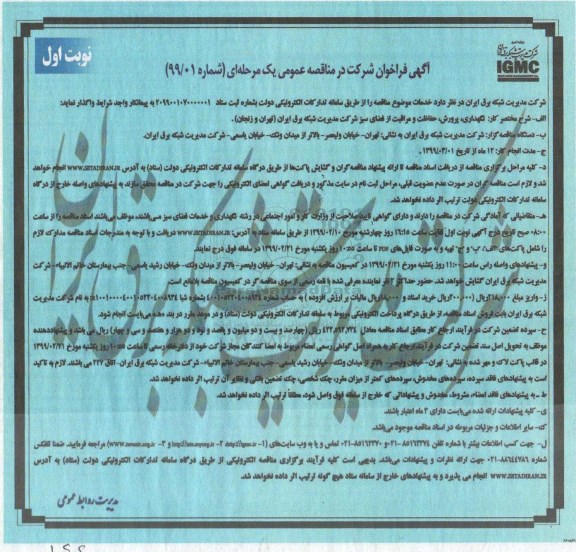 نوبت اول
IGMC
آگهی فراخوان شرکت در مناقصه عمومی یک مرحله‌ای (شماره ۹۹/۰۱)
شرکت مدیریت شبکه برق ایران در نظر دارد خدمات موضوع مناقصه را از طریق سامانه تدارکات الکترونیکی دولت بشماره ثبت ستاد ۲۰۹۹۰۰۱۰۷۰۰۰۰۰۰۱ به پیمانکار واجد شرایط واگذار نماید:
الف- شرح مختصر کار: نگهداری، پرورش، حفاظت و مراقبت از فضای سبز شرکت مدیریت شبکه برق ایران (تهران و زنجان).
ب- دستگاه مناقصه‌گزار: شرکت مدیریت شبکه برق ایران به نشانی: تهران- خیابان ولیعصر- بالاتر از میدان ونک- خیابان یاسمی- شرکت مدیریت شبکه برق ایران.
ج- مدت انجام کار: ۱۲ ماه از تاریخ ۱۳۹۹/۰۳/۰۱.
د- کلیه مراحل برگزاری مناقصه از دریافت اسناد مناقصه تا ارائه پیشنهاد مناقصه‌گران و گشایش پاکت‌ها از طریق درگاه سامانه تدارکات الکترونیکی دولت (ستاد) به آدرس WWW.SETADIRAN.IR انجام خواهد
شد و لازم است مناقصه گران در صورت عدم عضویت قبلی، مراحل ثبت نام در سایت مذکور و دریافت گواهی امضای الکترونیکی را جهت شرکت در مناقصه محقق سازند. به پیشنهادهای واصله خارج از درگاه
سامانه تدارکات الکترونیکی دولت ترتیب اثر داده نخواهد شد.
ه- متقاضیانی که آمادگی شرکت در مناقصه را دارند و دارای گواهی تایید صلاحیت از وزارت کار و امور اجتماعی در رشته نگهداری و خدمات فضای سبز می‌باشند، موظف می‌باشند اسناد مناقصه را از ساعت
۰۸:۰۰ صبح تاریخ درج آگهی نوبت اول لغایت ساعت ۱۶:۱۵ روز چهارشنبه مورخ ۱۳۹۹/۰۲/۱۰ از طریق سامانه ستاد به آدرس: WWW.SETADIRAN.IR دریافت و با توجه به مندرجات اسناد مناقصه مدارک لازم
را شامل پاکت‌های "الف"، "ب" و "ج" تهیه و به صورت فایل‌های PDF تا ساعت ۱۰:۰۰ روز یکشنبه مورخ ۱۳۹۹/۰۲/۲۱ در سامانه فوق درج نمایند.
و- پیشنهادهای واصله راس ساعت ۱۱:۰۰ روز یکشنبه مورخ ۱۳۹۹/۰۲/۲۱ در کمیسیون مناقصه به نشانی: تهران- خیابان ولیعصر- بالاتر از میدان ونک- خیابان رشید یاسمی- جنب بیمارستان خاتم الانبیاء- شرکت
مدیریت شبکه برق ایران گشایش خواهد شد. حضور حداکثر یک نفر نماینده معرفی شده با نامه رسمی از سوی مناقصه گر در کمیسیون مناقصه بلامانع است.
به نام شرکت مدیریت
شبکه برق ایران بابت فروش اسناد مناقصه، از طریق درگاه پرداخت الکترونیکی مربوط به سامانه تدارکات الکترونیکی دولت (ستاد) و در موعد مقرر در بند دهه می‌بایست انجام شود.
ح- سپرده تضمین شرکت در فرآیند ارجاع کار مطابق اسناد مناقصه معادل ریال (چهارصد و بیست و دو میلیون و پانصد و نود و دو هزار و هفتصد و سی و چهار) ریال می باشد و پیشنهاددهنده
موظف به تحویل اصل سند تضمین شرکت در فرآیند ارجاع کار به همراه اصل گواهی رسمی امضاء مربوط به امضاء کنندگان مجاز شرکت خود از دفترخانه رسمی تا ساعت ۱۰:۰۰ روز یکشنبه مورخ ۱۳۹۹/۰۲/۲۱
در قالب پاکت لاک و مهر شده به نشانی: تهران- خیابان ولیعصر- بالاتر از میدان ونک- خیابان رشید یاسمی- جنب بیمارستان خاتم الانبیاء- شرکت مدیریت شبکه برق ایران- اتاق ۲۲۷ می باشند. لازم به تاکید
است به پیشنهادهای فاقد سپرده، سپرده‌های مخدوش، سپرده‌های کمتر از میزان مقرر، چک شخصی، چک تضمین بانکی و نظایر آن ترتیب اثر داده نخواهد شد.
ط- به پیشنهادهای فاقد امضاء، مشروط، مخدوش و پیشنهاداتی که خارج از سامانه فوق واصل شود، مطلقاً ترتیب اثر داده نخواهد شد.
ی- کلیه پیشنهادات ارائه شده می‌بایست دارای ۳ ماه اعتبار باشند.
ک- سایر اطلاعات و جزئیات مربوطه در اسناد مناقصه موجود می‌باشد.
ل- جهت کسب اطلاعات بیشتر با شماره تلفن تماس و یا به وب سایت‌های مراجعه فرمایید. ضمنا تلفکس
شماره ۰۲۱-۸۸۶۴۴۷۸۶ جهت ارائه نظرات و پیشنهادات می‌باشد. بدیهی است کلیه فرآیند برگزاری مناقصه الکترونیکی از طریق درگاه سامانه تدارکات الکترونیکی دولت (ستاد) به آدرس
WWW.SETADIRAN.IR انجام می پذیرد و به پیشنهادهای خارج از سامانه ستاد هیچ گونه ترتیب اثر داده نخواهد شد.
مدیریت روابط عمومی